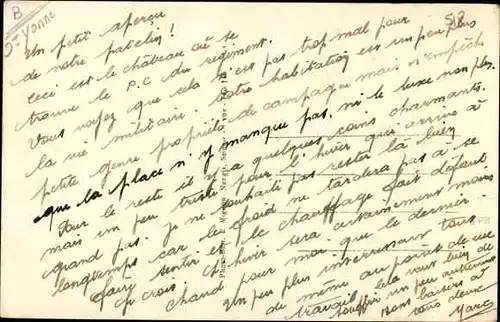 B
St Yvonne
518
Un petit aperçu
de notre patelin!
Ceci est le château où se
trouve le P.C du régiment.
Vous voyez que cela n'est pas trop mal pour
la vie militaire. Notre habitation est un peu plus
petite genre propriété de campagne mais n'empêche
que la place n'y manque pas, ni le luxe non plus.
Pour le reste il y a quelques coins charmants.
mais un peu triste pour l'hiver qui arrive à
grand pas. Je ne souhaite pas rester là bien
longtemps car le froid ne tardera pas à se
faire sentir et le chauffage fait défaut
Je crois que l'hiver sera certainement moins
chaud pour moi que le dernier.
Un peu plus intéressant tous
de même au point de vue
travail. Cela vaut bien de
souffrir un peu autrement
Bons baisers à
tous deux
Marc